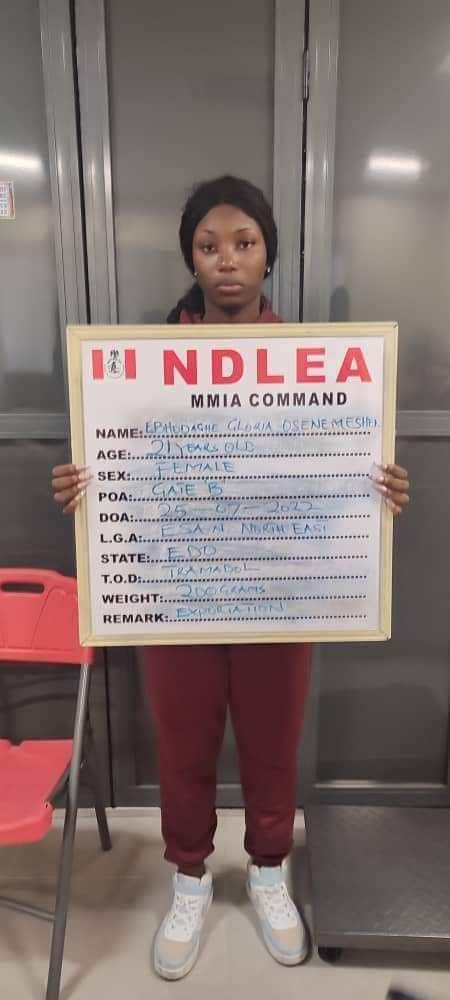 NDLEA
MMIA COMMAND
NAME: EBHODAGHE GLORIA OSENEMESHEN
AGE: 21 YEARS OLD
SEX: FEMALE
POA: GATE B
DOA: 25-07-2022
L.G.A: ESAN NORTH EAST
STATE: EDO
T.O.D: TRAMADOL
WEIGHT: 200 GRAMS
REMARK: EXPORTATION